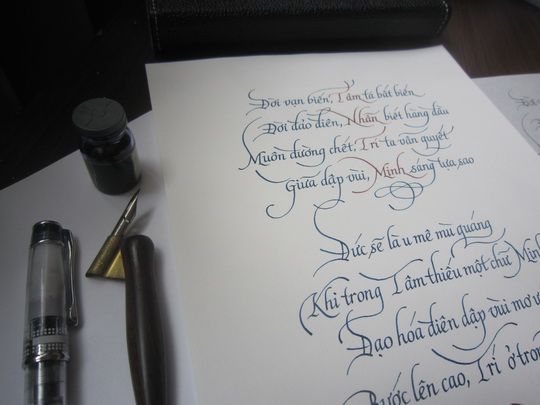 Đời vạn biến, Tâm ta bất biến
Đời đảo điên, Nhẫn biết hàng đầu
Muôn đường chết, Trí ta vẫn quyết
Giữa dập vùi, Minh sáng tựa sao
Đức, sẽ là u mê mù quáng
Khi trong Tâm thiếu một chữ Minh
Đạo hóa điên dập vùi mơ
Bước lên cao, Trí ở